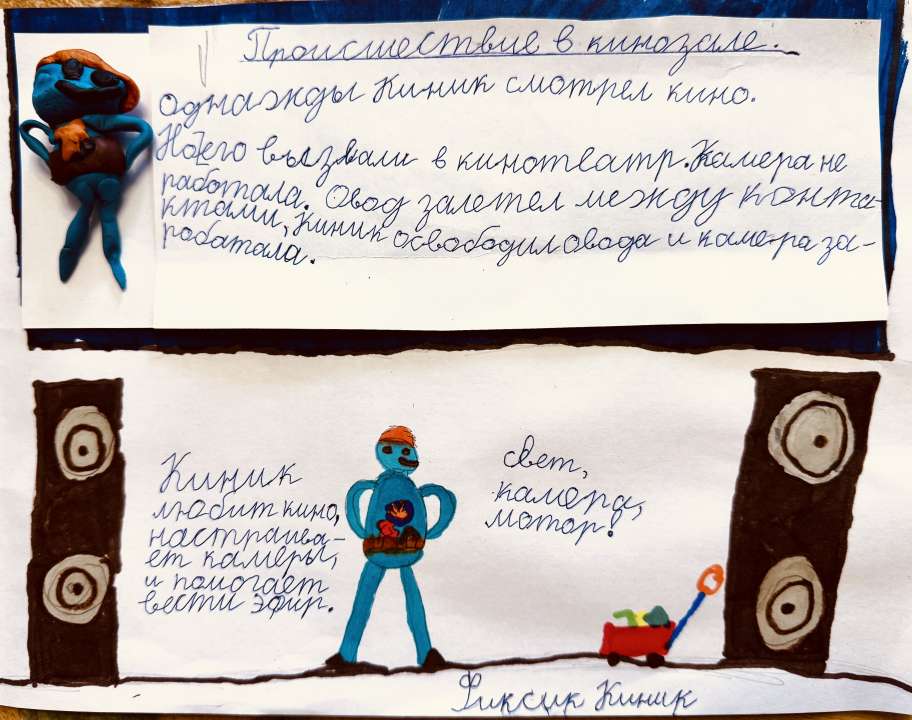 Происшествие в кинозале.
Однажды Киник смотрел кино.
Но его вызвали в кинотеатр. Камера не
работала. Овод залетел между конта-
ктами, Киник освободил овода и камера за-
работала.
Киник
любит кино,
настраива-
ет камеры,
и помогает
вести эфир.
свет,
камера,
мотор!
Фиксик Киник